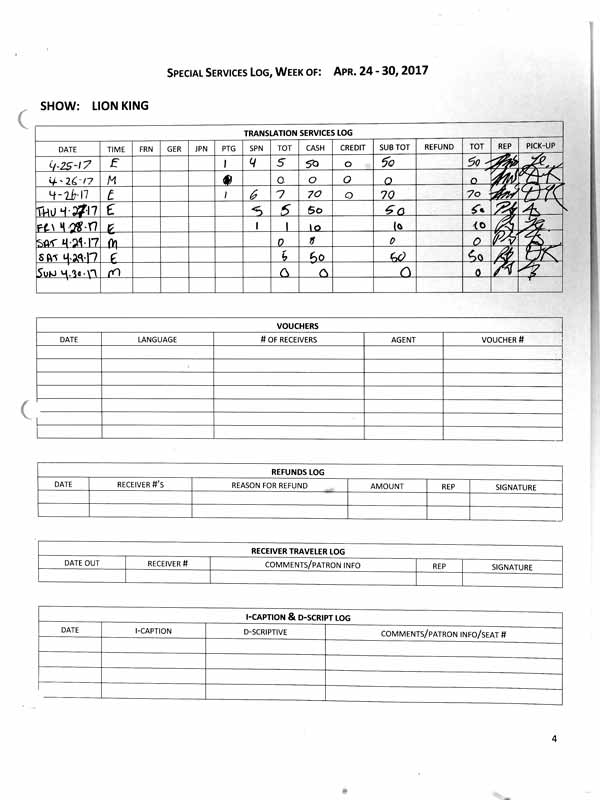 SPECIAL SERVICES LOG, WEEK OF: APR. 24 - 30, 2017
SHOW: LION KING
TRANSLATION SERVICES LOG
DATE TIME FRN GER JPN PTG SPN TOT CASH CREDIT SUB TOT REFUND TOT REP PICK-UP
4-25-17 E 1 4 5 50 0 50 50
4-26-17 M 0 0 0 0 0 DK
4-26-17 E 1 6 7 70 0 70 70 DK
THU 4.27.17 E 5 5 50 50 50
FRI 4.28.17 E 1 1 10 10 10
SAT 4.29.17 M 0 0 0 0
SAT 4.29.17 E 5 50 50 50 DK
SUN 4.30.17 M 0 0 0 0
VOUCHERS
DATE LANGUAGE # OF RECEIVERS AGENT VOUCHER #
REFUNDS LOG
DATE RECEIVER #'S REASON FOR REFUND AMOUNT REP SIGNATURE
RECEIVER TRAVELER LOG
DATE OUT RECEIVER # COMMENTS/PATRON INFO REP SIGNATURE
I-CAPTION & D-SCRIPT LOG
DATE I-CAPTION D-SCRIPTIVE COMMENTS/PATRON INFO/SEAT #
4